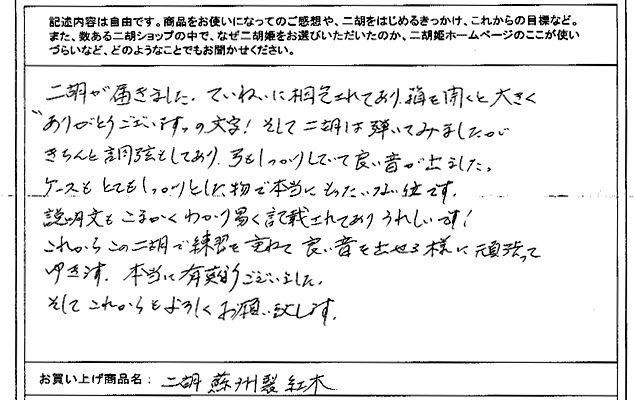 記述内容は自由です。商品をお使いになってのご感想や、二胡をはじめるきっかけ、これからの目標など。
また、数ある二胡ショップの中で、なぜ二胡姫をお選びいただいたのか、二胡姫ホームページのここが使い
づらいなど、どのようなことでもお聞かせください。
二胡が届きました。ていねいに梱包されており、箱を開くと大きく
"ありがとうございます〃の文字! そして二胡は弾いてみましたが
きちんと調弦もしており、弓もしっかりしていて良い音が出ました。
ケースもとてもしっかりとした物で本当にもったいない位です。
説明文もこまかくわかり易く記載されておりうれしいです!
これからこの二胡で練習を重ねて良い音を出せる様に頑張って
ゆきます。本当に有難うございました。
そしてこれからもよろしくお願い致します。
お買い上げ商品名: 二胡 蘇州製 紅木